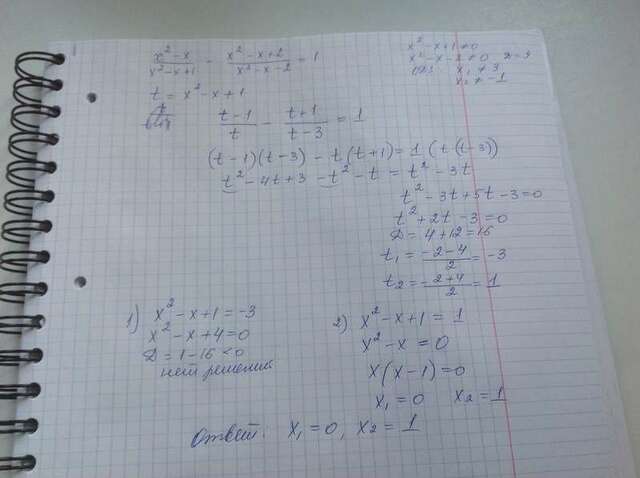 (x²-x)/(x²-x+1) - (x²-x+2)/(x²-x-2) = 1
x²-x+1≠0
x²-x-2≠0
x₂≠-1
t = x²-x+1
(t-1)/t - (t+1)/(t-3) = 1
(t-1)(t-3) - t(t+1) = 1(t(t-3))
t²-4t+3-t²-t = t²-3t
t²-3t+5t-3=0
t²+2t-3=0
D=4+12=16
t₁=(-2-4)/2=-3
t₂=(-2+4)/2=1
1) x²-x+1=-3
x²-x+4=0
D=1-16<0
нет решений
2) x²-x+1=1
x²-x=0
x(x-1)=0
x₁=0 x₂=1
Ответ: x₁=0, x₂=1